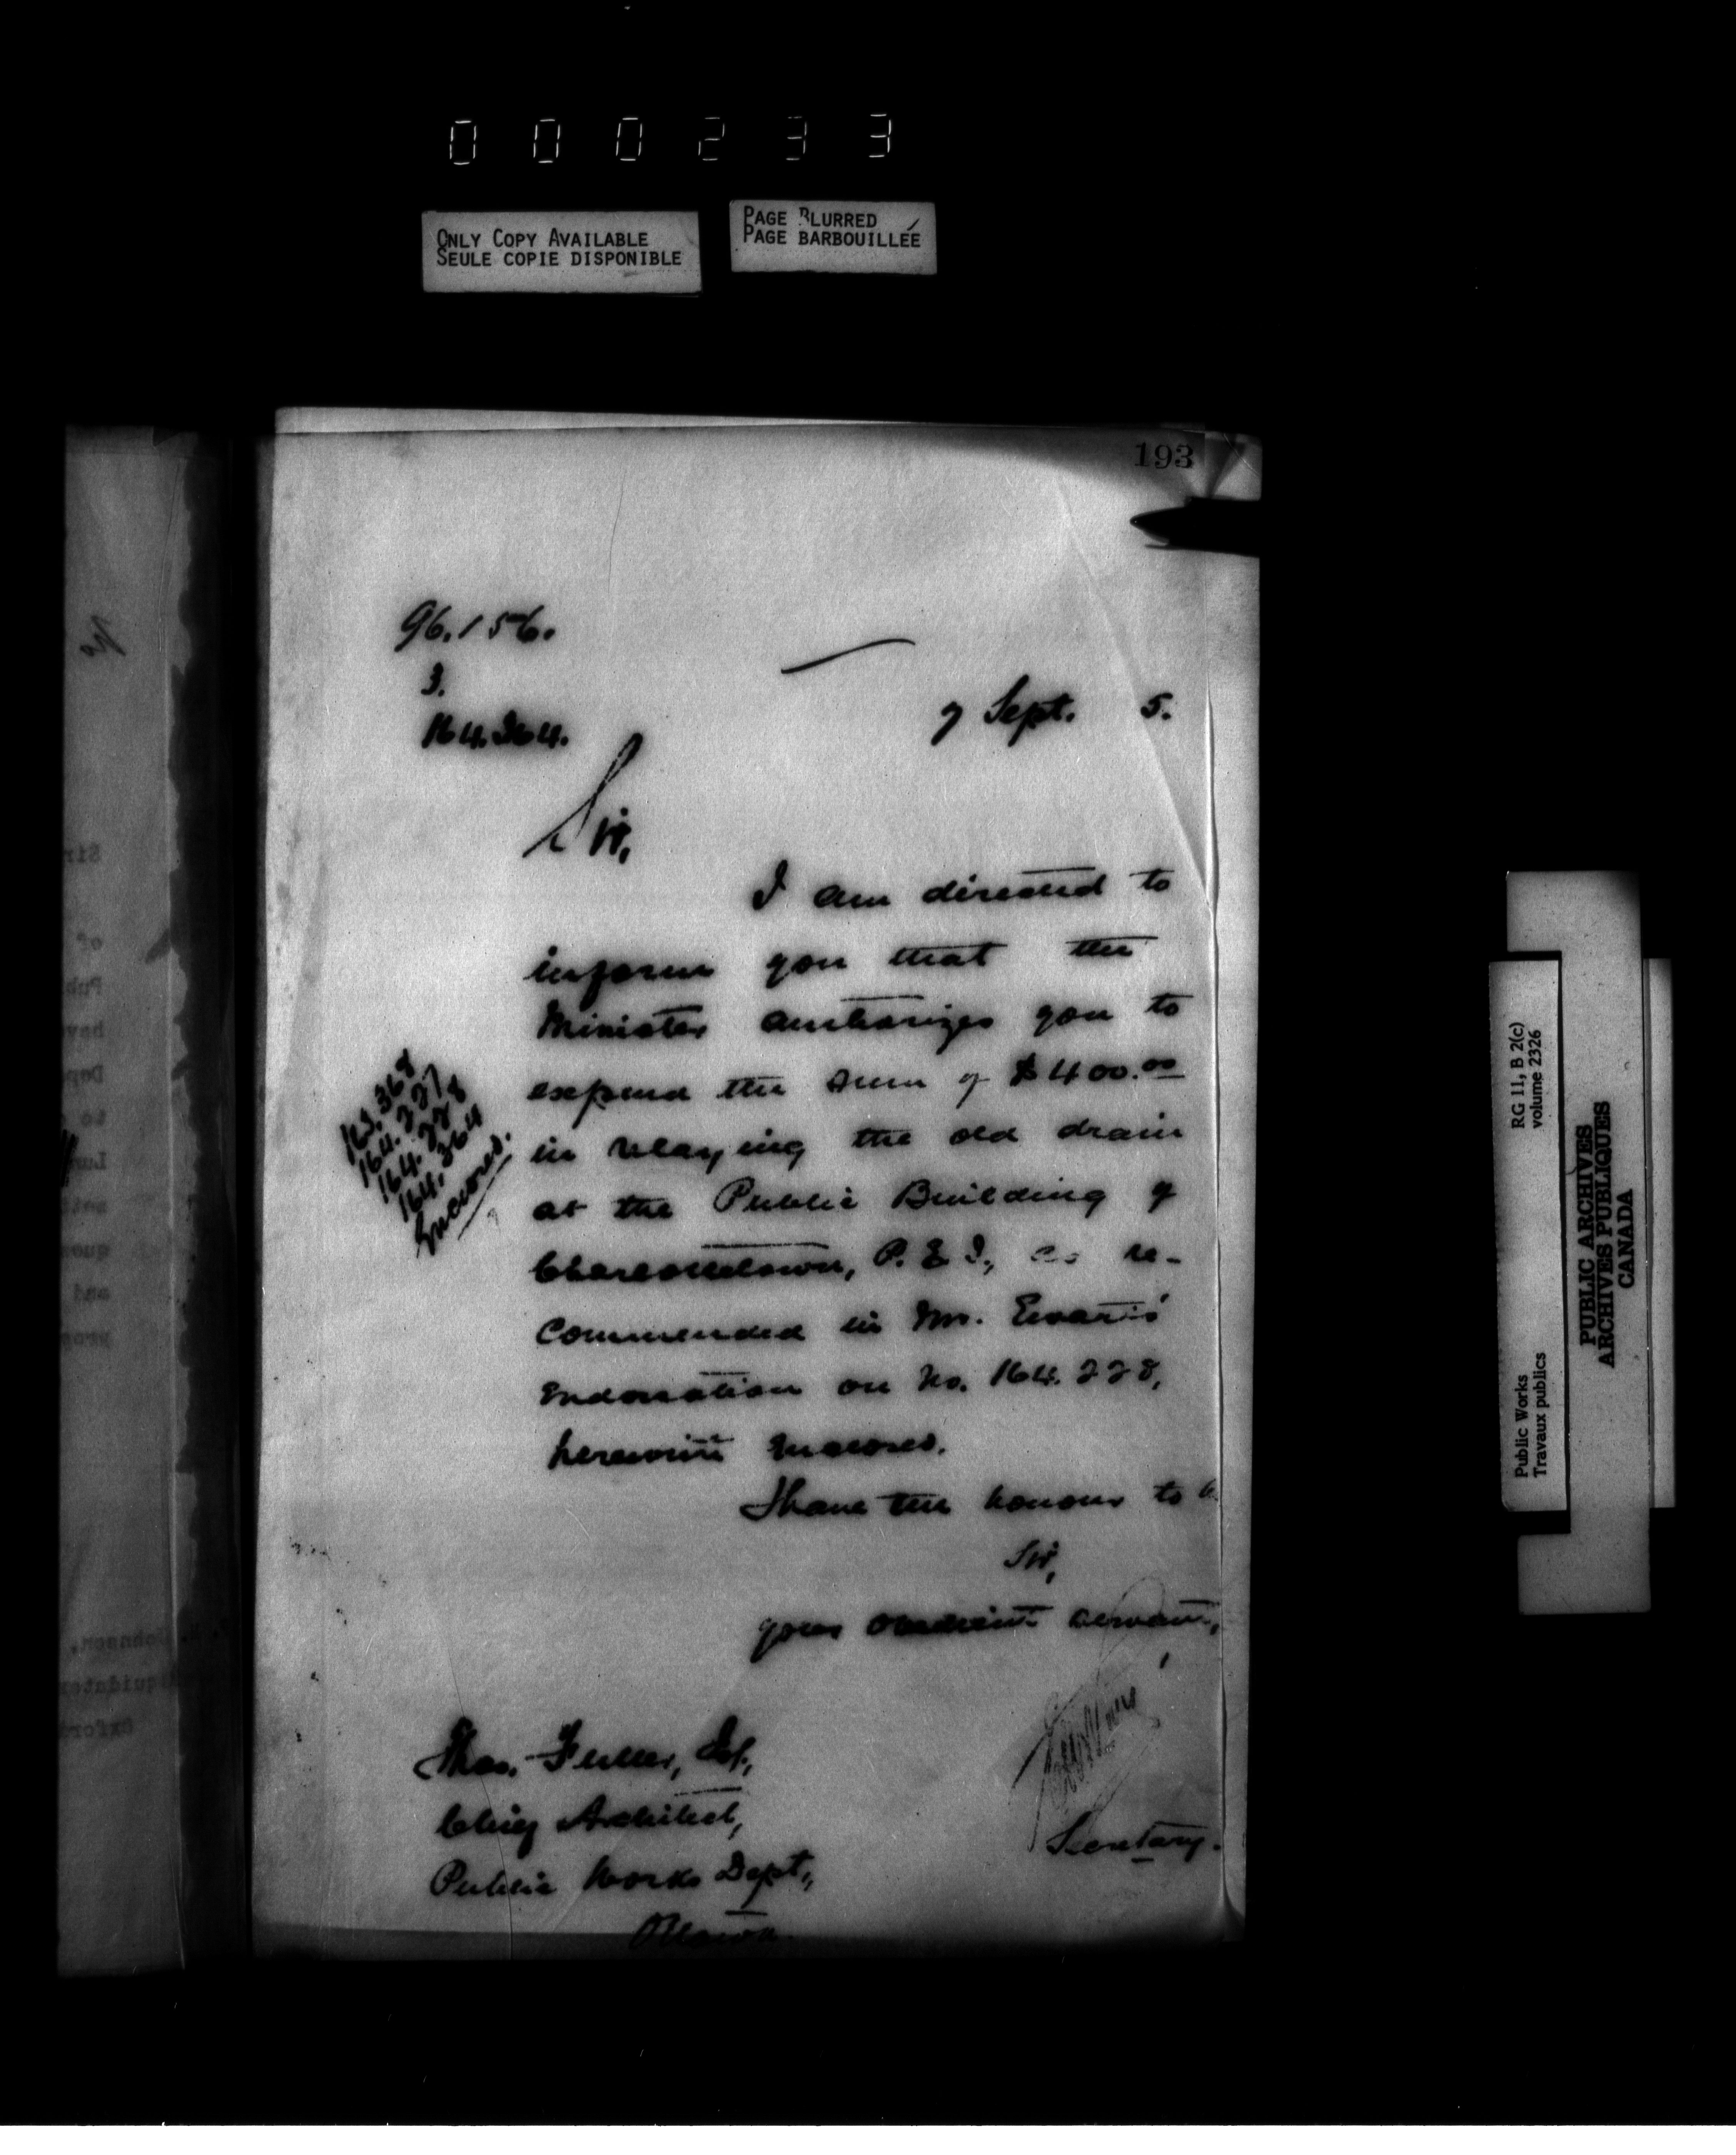 000233
ONLY COPY AVAILABLE
SEULE COPIE DISPONIBLE
PAGE BLURRED
PAGE BARBOUILLÉE
193
96.156.
3.
164.364.
7 Sept. 5.
Sir,
I am directed to
inform you that the
Minister authorizes you to
expend the sum of $400.00
in relaying the old drain
at the Public Building of
Charlottetown, P.E.I., as re-
commended in Mr. Ewart's
Endorsation on No. 164.228,
herewith Enclosed.
I have the honour to
Sir,
your obedient servant,
Secretary.
164.227
164.228
164.364
Enclosed.
Thos. Fuller, Esq.,
Chief Architect,
Public Works Dept.,
Ottawa.
RG 11, B 2(c)
volume 2326
Public Works
Travaux publics
PUBLIC ARCHIVES
ARCHIVES PUBLIQUES
CANADA